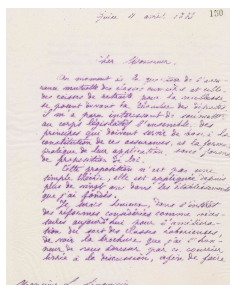 150
Guise 11 avril 1883
Cher Monsieur
Au moment où la question de l'assu-
rance mutuelle des classes ouvrières et celle
des caisses de retraite pour la vieillesse
se posent devant la Chambre des députés
il m'a paru intéressant de soumettre
au corps législatif l'ensemble des
principes qui doivent servir de base à la
constitution de ces assurances, et la forme
pratique de leur application, sous forme
de proposition de loi.
Cette proposition n'est pas une
simple théorie, elle est appliquée depuis
plus de vingt ans dans les établissements
que j'ai fondés.
Je serais heureux, dans l'intérêt
des réformes considérées comme néces-
saires aujourd'hui pour l'améliora-
tion du sort des classes laborieuses,
de voir la brochure que j'ai l'hon-
neur de vous adresser par ce courrier
livrée à la discussion, afin de faire
Monsieur